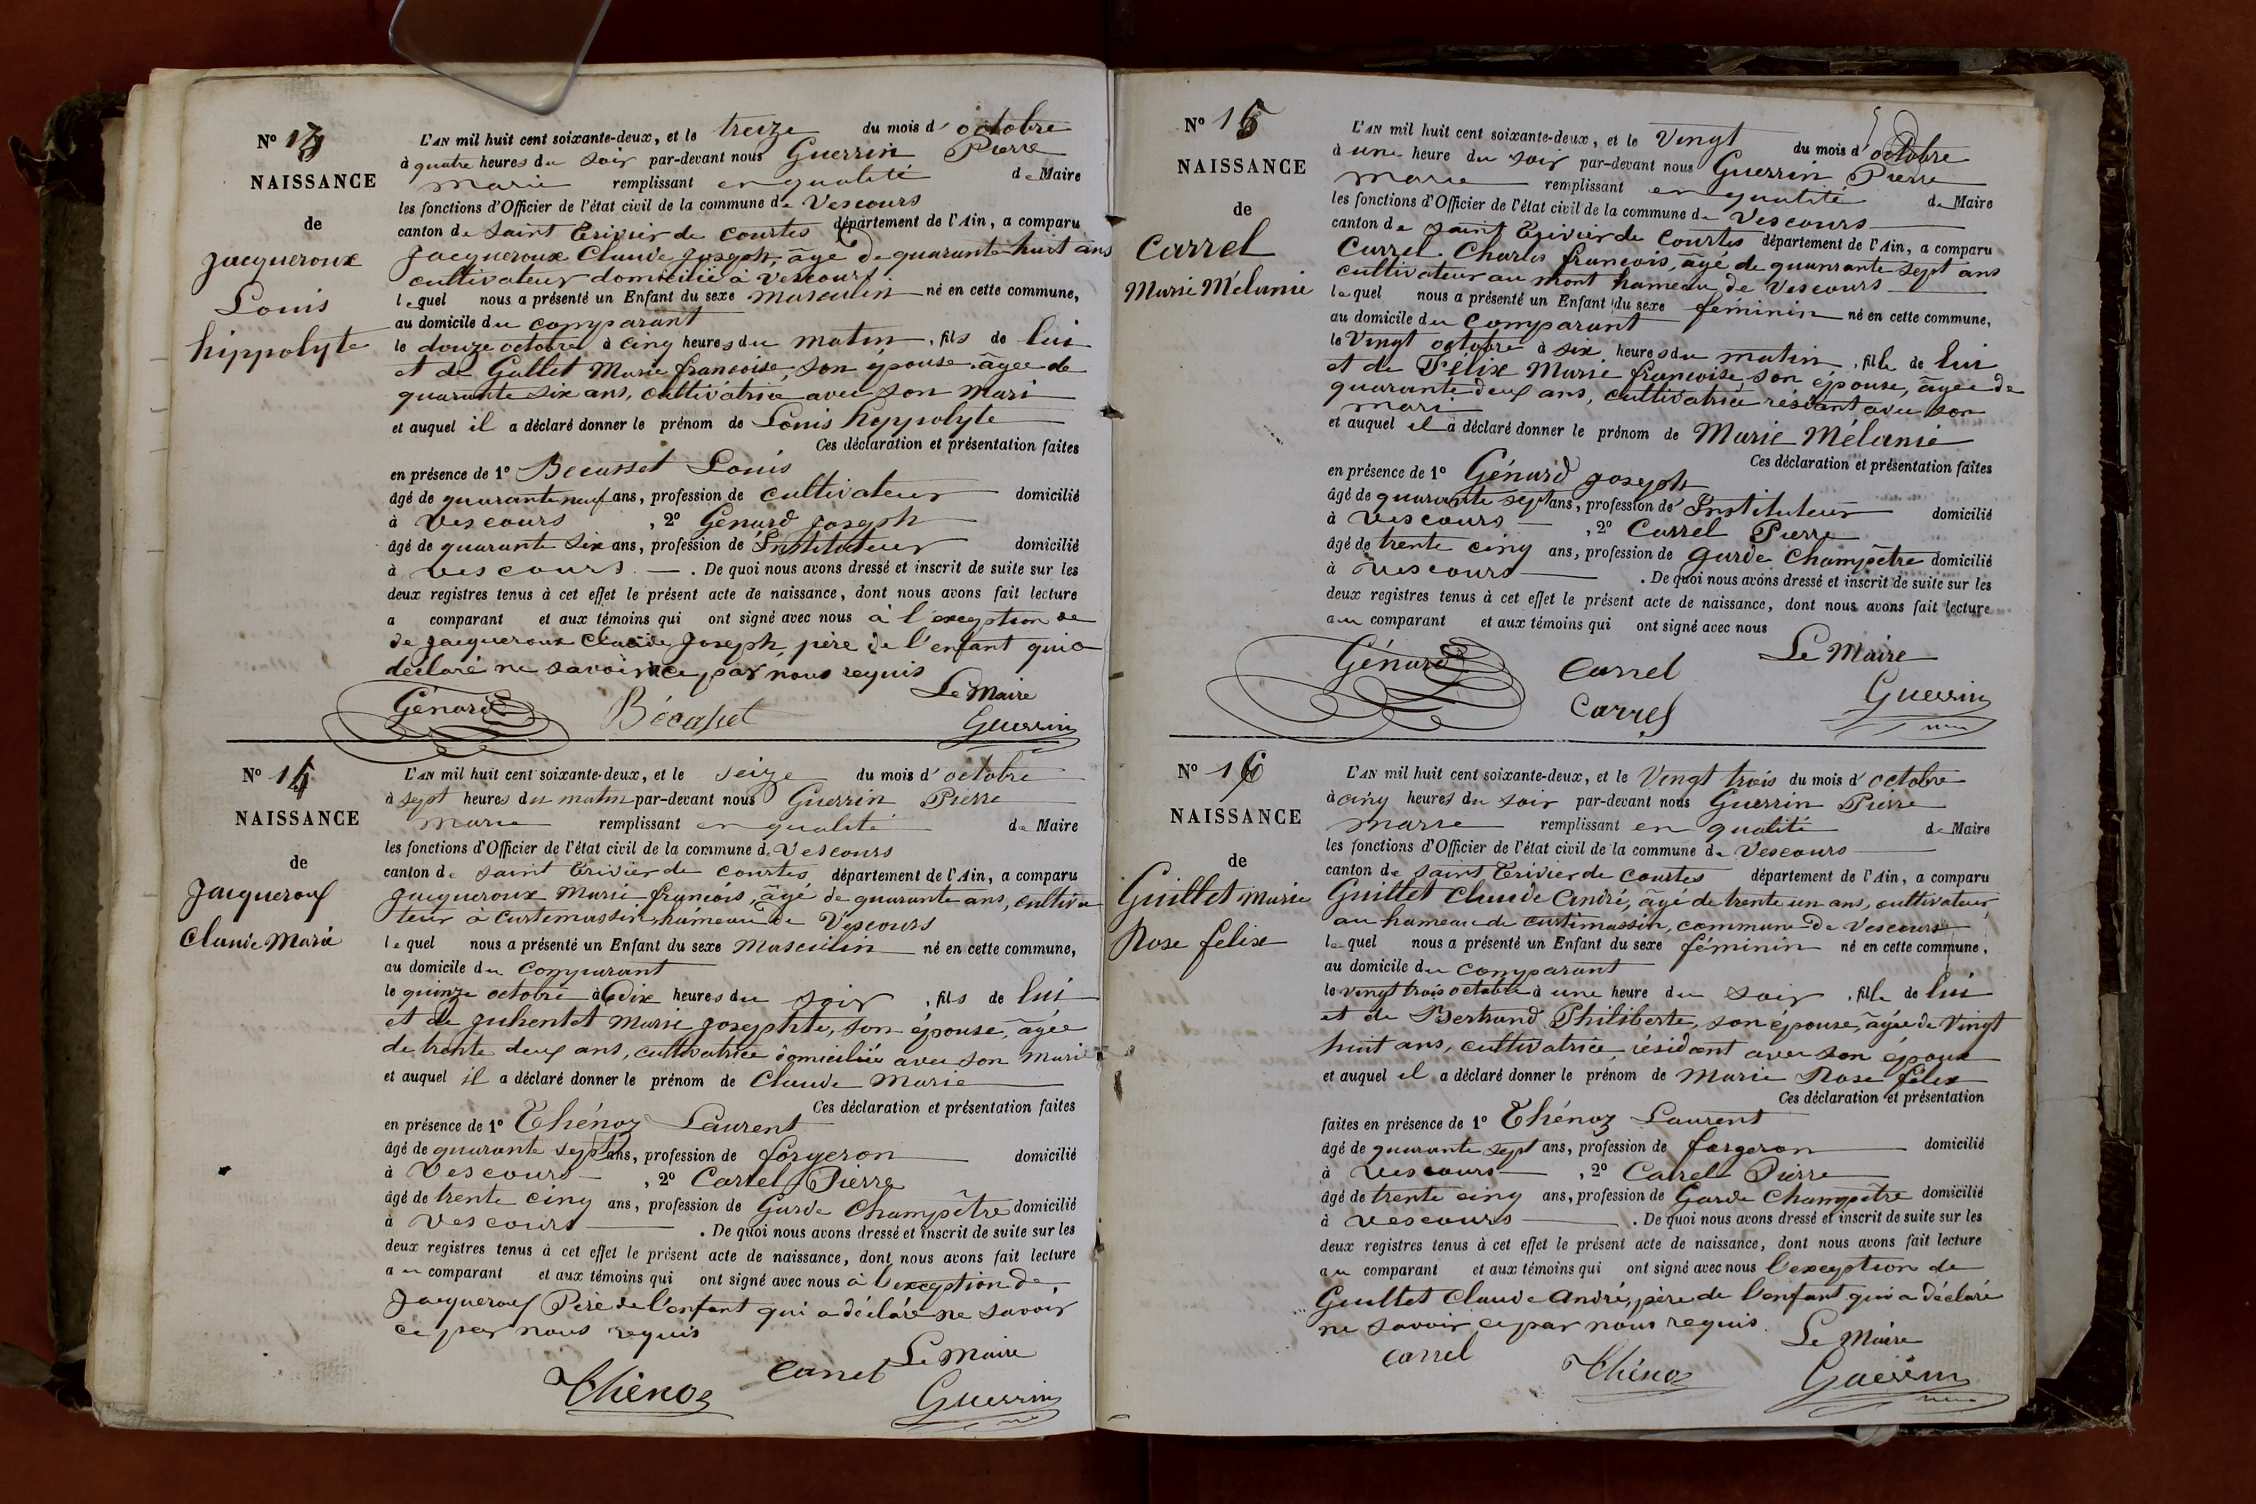 N° 13
NAISSANCE
de
Jacqueroux
Louis
hippolyte
L'AN mil huit cent soixante-deux, et le treize du mois d'octobre
à quatre heures du soir par-devant nous Guerrin Pierre
Marie remplissant en qualité de Maire
les fonctions d'Officier de l'état civil de la commune de Vescours
canton de Saint Trivier de Courtes département de l'Ain, a comparu
Jacqueroux Claude Joseph, âgé de quarante huit ans
cultivateur domicilié à Vescours
lequel nous a présenté un Enfant du sexe masculin né en cette commune,
au domicile du comparant
le douze octobre à cinq heures du matin, fils de lui
et de Gallet Marie françoise, son épouse âgée de
quarante six ans, cultivatrice avec son mari
et auquel il a déclaré donner le prénom de Louis hyppolyte
Ces déclaration et présentation faites
en présence de 1° Becasset Louis
âgé de quarante neuf ans, profession de cultivateur domicilié
à Vescours, 2° Génard Joseph
âgé de quarante six ans, profession de Instituteur domicilié
à Vescours. De quoi nous avons dressé et inscrit de suite sur les
deux registres tenus à cet effet le présent acte de naissance, dont nous avons fait lecture
a comparant et aux témoins qui ont signé avec nous à l'exception de
de Jacqueroux Claude Joseph, père de l'enfant qui a
déclaré ne savoir ce par nous requis
Le Maire
Génard Bécasset Guerrin
N° 14
NAISSANCE
de
Jacqueroux
Claude Marie
L'AN mil huit cent soixante-deux, et le seize du mois d'octobre
à sept heures du matin par-devant nous Guerrin Pierre
Marie remplissant en qualité de Maire
les fonctions d'Officier de l'état civil de la commune de Vescours
canton de Saint Trivier de Courtes département de l'Ain, a comparu
Jacqueroux Marie françois, âgé de quarante ans, cultiva
teur à Curtimassin, hameau de Vescours
lequel nous a présenté un Enfant du sexe Masculin né en cette commune,
au domicile du comparant
le quinze octobre à dix heures du soir, fils de lui
et de Juhentet Marie Josephte, son épouse, âgée
de trente deux ans, cultivatrice domiciliée avec son mari
et auquel il a déclaré donner le prénom de Claude Marie
Ces déclaration et présentation faites
en présence de 1° Thénoz Laurent
âgé de quarante sept ans, profession de forgeron domicilié
à Vescours, 2° Carrel Pierre
âgé de trente cinq ans, profession de Garde Champêtre domicilié
à Vescours. De quoi nous avons dressé et inscrit de suite sur les
deux registres tenus à cet effet le présent acte de naissance, dont nous avons fait lecture
au comparant et aux témoins qui ont signé avec nous à l'exception de
Jacqueroux Père de l'enfant qui a déclaré ne savoir
ce par nous requis
Le Maire
Thénoz Carrel Guerrin
N° 15
NAISSANCE
de
Carrel
Marie Mélanie
L'AN mil huit cent soixante-deux, et le Vingt du mois d'octobre
à une heure du soir par-devant nous Guerrin Pierre
Marie remplissant en qualité de Maire
les fonctions d'Officier de l'état civil de la commune de Vescours
canton de Saint Trivier de Courtes département de l'Ain, a comparu
Carrel Charles françois, âgé de quanrante sept ans
cultivateur au mont hameau de Vescours
lequel nous a présenté un Enfant du sexe féminin né en cette commune,
au domicile du comparant
le Vingt octobre à six heures du matin, fille de lui
et de Félix Marie françoise, son épouse, âgée de
quarante deux ans, cultivatrice résidant avec son
mari
et auquel il a déclaré donner le prénom de Marie Mélanie
Ces déclaration et présentation faites
en présence de 1° Génard Joseph
âgé de quarante sept ans, profession de Instituteur domicilié
à Vescours, 2° Carrel Pierre
âgé de trente cinq ans, profession de garde Champêtre domicilié
à Vescours. De quoi nous avons dressé et inscrit de suite sur les
deux registres tenus à cet effet le présent acte de naissance, dont nous avons fait lecture
au comparant et aux témoins qui ont signé avec nous
Le Maire
Génard Carrel
Carrel Guerrin
N° 16
NAISSANCE
de
Guillet Marie
Rose felix
L'AN mil huit cent soixante-deux, et le Vingt trois du mois d'octobre
à cinq heures du soir par-devant nous Guerrin Pierre
Marie remplissant en qualité de Maire
les fonctions d'Officier de l'état civil de la commune de Vescours
canton de Saint Trivier de Courtes département de l'Ain, a comparu
Guillet Claude André, âgé de trente un ans, cultivateur
au hameau de curtimassin, commune de Vescours
lequel nous a présenté un Enfant du sexe féminin né en cette commune,
au domicile du comparant
le vingt trois octobre à une heure du soir, fille de lui
et de Bertrand Philiberte, son épouse, âgée de Vingt
huit ans, cultivatrice, résidant avec son époux
et auquel il a déclaré donner le prénom de Marie Rose felix
Ces déclaration et présentation
faites en présence de 1° Thénoz Laurent
âgé de quarante sept ans, profession de forgeron domicilié
à Vescours, 2° Carrel Pierre
âgé de trente cinq ans, profession de Garde Champêtre domicilié
à Vescours. De quoi nous avons dressé et inscrit de suite sur les
deux registres tenus à cet effet le présent acte de naissance, dont nous avons fait lecture
au comparant et aux témoins qui ont signé avec nous l'exception de
Guillet Claude André, père de l'enfant qui a déclaré
ne savoir ce par nous requis.
Le Maire
Carrel Thénoz Guerrin